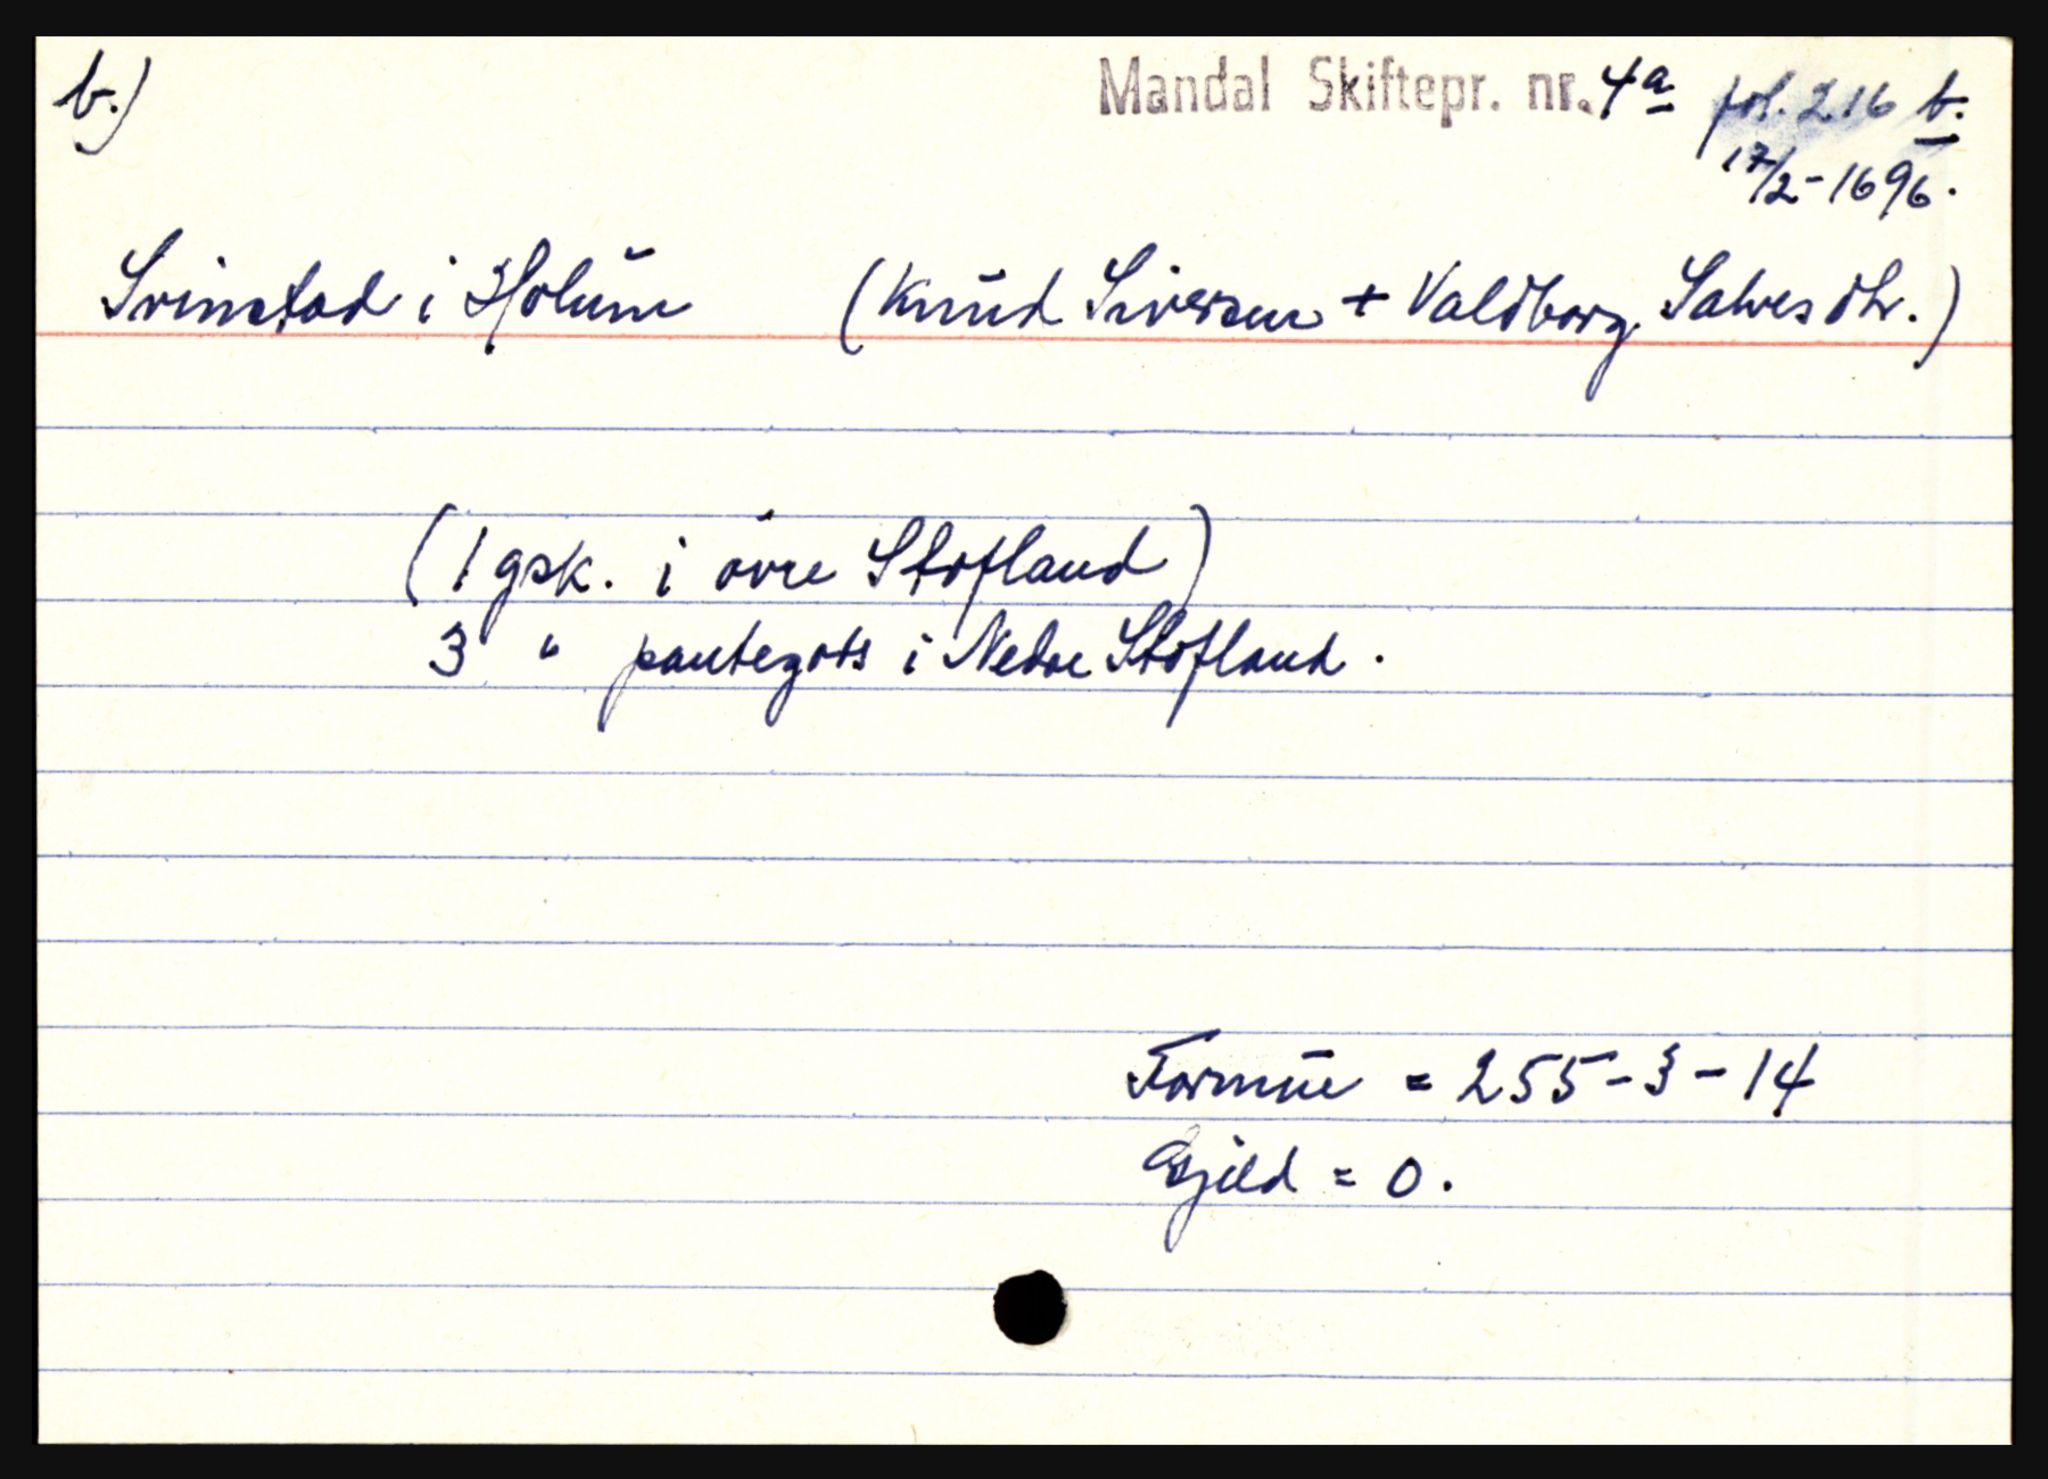 b.)
Mandal Skiftepr. nr. 4a fol. 216 b.
17/2-1696.
Svinstad i Holum (Knud Siversen + Valdborg Salvesdtr.)
(1 gsk. i övre Stofland)
3 " pantegods i Nedre Stofland.
Formue = 255-3-14
Gjeld = 0.